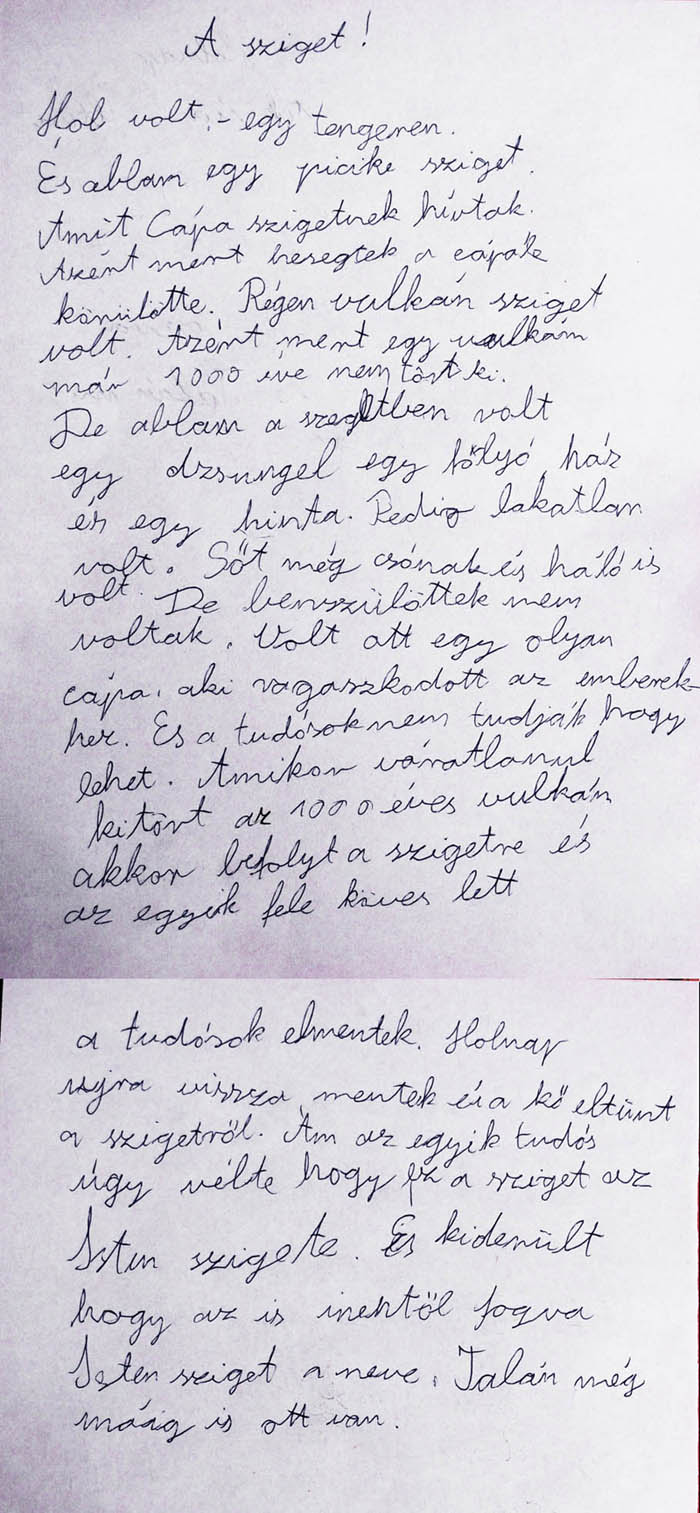 A sziget!
Hol volt, - egy tengeren.
És ablam egy picike sziget.
Amit Cápa szigetnek hívtak.
Azént ment kesegtek a cápák
körülötte. Régen vulkán sziget
volt. Azént ment egy vulkám
már 1000 éve nem tört ki.
De ablam a szegetben volt
egy dzsungel egy fólyó, ház
és egy hinta. Pedig lakatlan
volt. Sőt még csónak és háló is
volt. De benszülöttek nem
voltak. Volt ott egy olyan
cápa, aki ragaszkodott az emberek-
hez. És a tudósok nem tudják hogy
lehet. Amikor váratlanul
kitört az 1000 éves vulkán
akkor befolyt a szigetre és
az egyik fele köves lett
a tudósok elmentek. Holnap
ujra vissza mentek és a kő eltünt
a szigetről. Ám az egyik tudós
úgy vélte hogy ez a sziget az
Isten szigete. És kiderült
hogy az is inentöl fogva
Isten sziget a neve. Talán még
mááig is ott van.